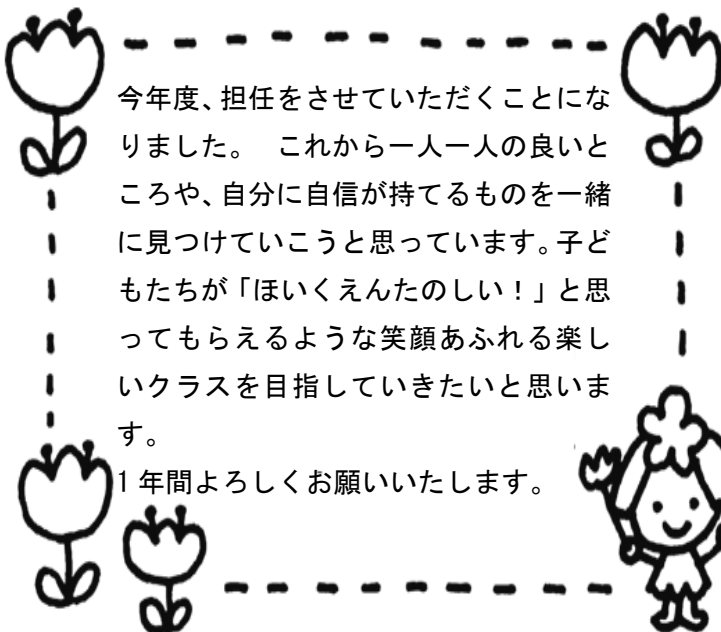 今年度、担任をさせていただくことにな
りました。　これから一人一人の良いと
ころや、自分に自信が持てるものを一緒
に見つけていこうと思っています。子ど
もたちが「ほいくえんたのしい！」と思
ってもらえるような笑顔あふれる楽し
いクラスを目指していきたいと思いま
す。
1年間よろしくお願いいたします。